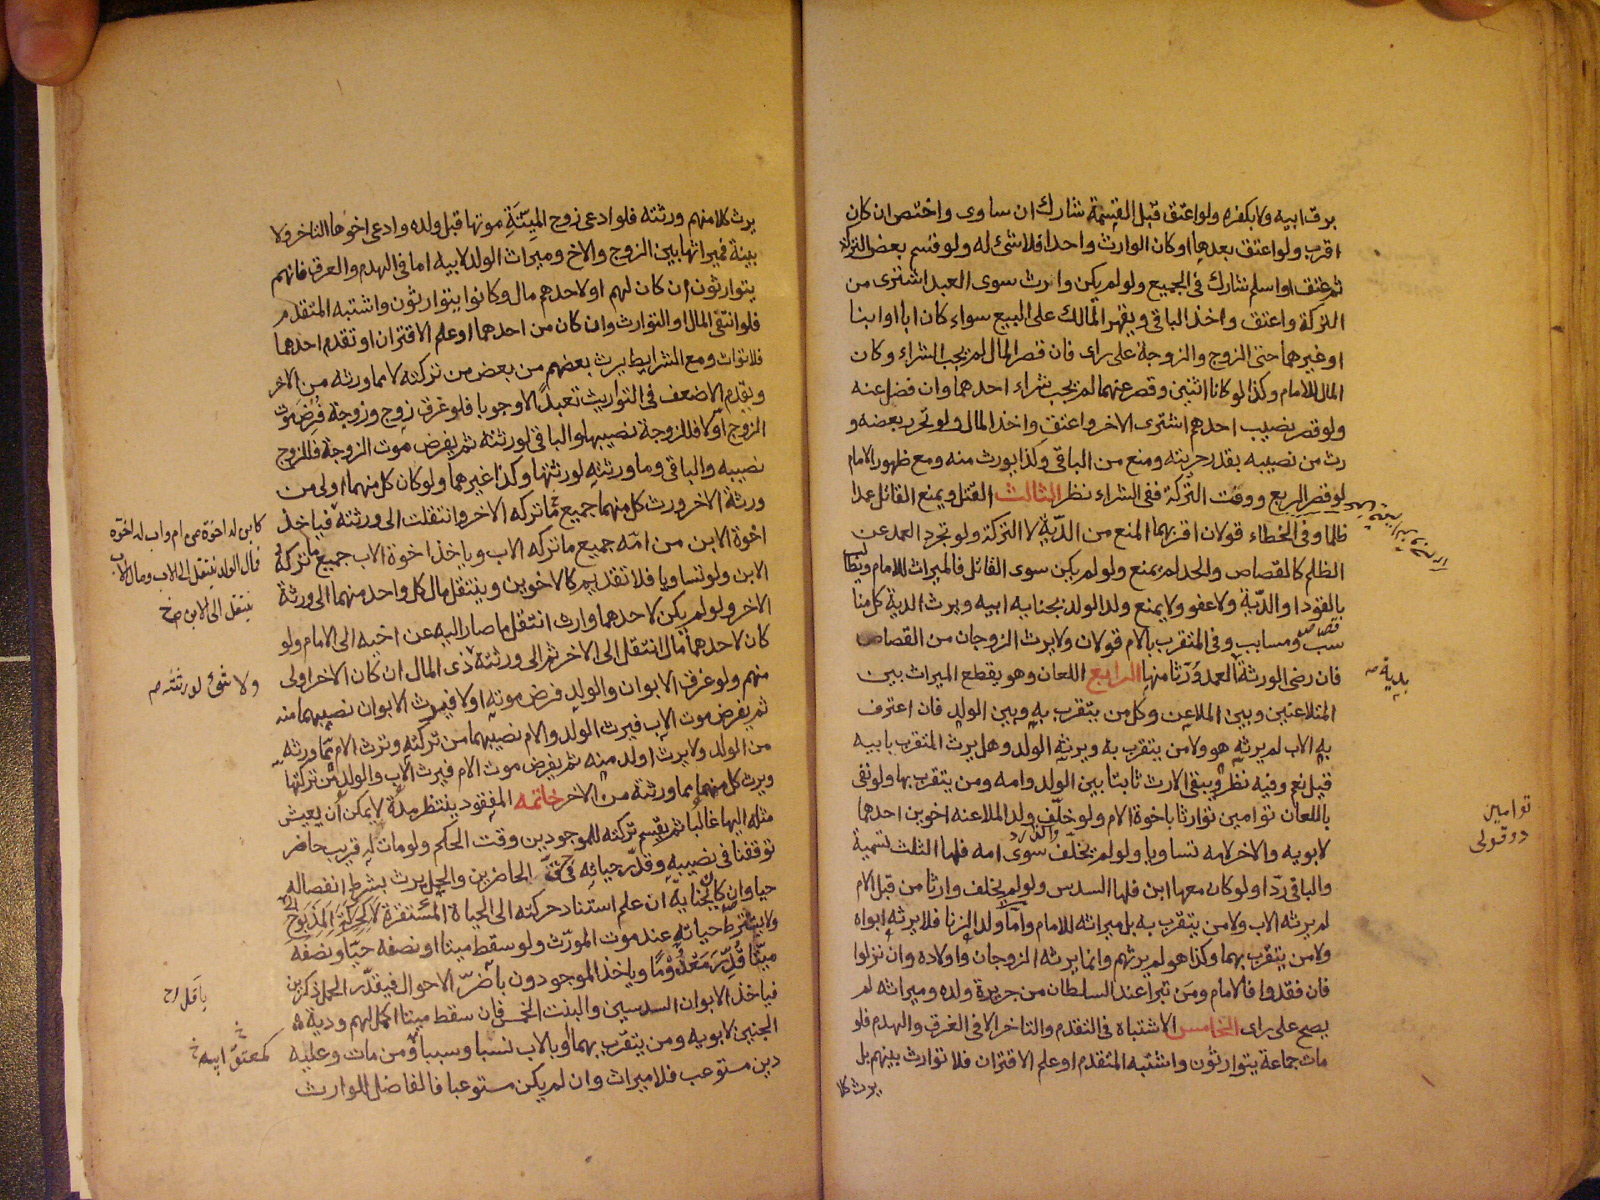 برق ابيه ولا بكفره ولو اعتق قبل القسمة شارك ان ساوى واختص ان كان
اقرب ولو اعتق بعدها او كان الوارث واحدا فلا شئ له ولو قسم بعض التركة
ثم عتق او اسلم شارك فى الجميع ولو لم يكن وارث سوى العبد اشترى من
التركة واعتق واخذ الباقى ويقهر المالك على البيع سواء كان ابا او ابنا
او غيرهما حتى الزوج والزوجة على راى فان قصر المال لم يجب الشراء وكان
المال للامام وكذا لو كانا اثنين وقصر عنهما لم يجب شراء احدهما وان فضل عنه
ولو قصر نصيب احدهم اشترى الاخر واعتق واخذ المال ولو تحرر بعضه و
رث من نصيبه بقدر حريته ومنع من الباقى وكذا يورث منه ومع ظهور الامام
لو قصر الربع ووفت التركة ففى الشراء نظر الثالث القتل ويمنع القاتل عمدا
ظلما وفى الخطاء قولان اقربهما المنع من الدية لا التركة ولو تجرد العمد عن
الظلم كالقصاص والحد لم يمنع ولو لم يكن سوى القاتل فالميراث للامام ويطالب
بالقود او الدية ولا عفو ولا يمنع ولد الولد بجناية ابيه ويرث الدية كل مناسب
ومسابب وفى المتقرب بالام قولان ولا يرث الزوجان من القصاص
فان رضى الورثة العمد ورثا منها الرابع اللعان وهو يقطع الميراث بين
المتلاعنين وبين الملاعن وكل من يتقرب به وبين الولد فان اعترف
به الاب لم يرثه هو ولا من يتقرب به ويرثه الولد وهل يرث المتقرب بابيه
قيل نعم وفيه نظر ويبقى الارث ثابتا بين الولد وامه ومن يتقرب بها ولو نفى
باللعان توامين توارثا باخوة الام ولو خلف ولد الملاعنه اخوين احدهما
لابويه والاخر لامه تساويا ولو لم يخلف سوى امه فلها الثلث تسمية
والباقى ردا ولو كان معها ابن فلها السدس ولو لم يخلف وارثا من قبل الام
لم يرثه الاب ولا من يتقرب به بل ميراثه للامام واما ولد الزنا فلا يرثه ابواه
ولا من يتقرب بهما وكذا هو لم يرثهم وانما يرثه الزوجان واولاده وان نزلوا
فان فقدوا فالامام ومن تبرا عند السلطان من جريرة ولده وميراثه لم
يصح على راى الخامس الاشتباه فى التقدم والتاخر الا فى الغرق والهدم فلو
مات جماعة يتوارثون واشتبه المتقدم او علم الاقتران فلا توارث بينهم بل
يرث كلا
بدية
توامين
دو قولى
يرث كلا منهم ورثته فلو ادعى زوج الميتة موتها قبل ولده وادعى اخوها التاخر ولا
بينة فميراثها بين الزوج والاخ وميراث الولد لابيه اما فى الهدم والغرق فانهم
يتوارثون ان كان لهم او لاحدهم مال وكانوا يتوارثون واشتبه المتقدم
فلو انتفى المال او التوارث وان كان من احدهما او علم الاقتران او تقدم احدهما
فلا توارث ومع الشرايط يرث بعضهم من بعض من تركته لا مما ورثه من الاخر
ويقدم الاضعف فى التوارث تعبدا لا وجوبا فلو غرق زوج وزوجة فرض موت
الزوج اولا فللزوجة نصيبها والباقى لورثته ثم يفرض موت الزوجة فللزوج
نصيبه والباقى وما ورثته لورثتها وكذا غيرهما ولو كان كل منهما اولى من
ورثة الاخر ورث كل منهما جميع ما تركه الاخر وانتقلت الى ورثته فياخذ
اخوة الابن من امه جميع ما تركه الاب وياخذ اخوة الاب جميع ما تركه
الابن ولو تساويا فلا تقديم كالاخوين وينتقل مال كل واحد منهما الى ورثة
الاخر ولو لم يكن لاحدهما وارث انتقل ما صار اليه عن اخيه الى الامام ولو
كان لاحدهما مال انتقل الى الاخر ثم الى ورثته ذى المال ان كان الاخر اولى
منهم ولو غرق الابوان والولد فرض موته اولا فيرث الابوان نصيبهما منه
ثم يفرض موت الاب فيرث الولد والام نصيبهما من تركته وترث الام مما ورثه
من الولد ولا يرث الولد منه ثم يفرض موت الام فيرث الاب والولد من تركتها
ويرث كل منهما مما ورثته من الاخر خاتمه المفقود ينتظر مدة لا يمكن ان يعيش
مثله اليها غالبا ثم يقسم تركته للموجودين وقت الحكم ولو مات له قريب حاضر
توقفنا فى نصيبه وقدر حياته فى حق الحاضرين والحمل يرث بشرط انفصاله
حيا وان كان بجناية ان علم استناد حركته الى الحياة المستقرة لا كحركة المذبوح
ولا يشترط حياته عند موت المورث ولو سقط ميتا او نصفه حيا ونصفه
ميتا قدر معدوما وياخذ الموجودون باضر الاحوال فيقدر الحمل ذكرين
فياخذ الابوان السدسين والبنت الخمس فان سقط ميتا اكمل لهم ودية
الجنين لابويه ومن يتقرب بهما او بالاب نسبا وسببا ومن مات وعليه
دين مستوعب فلا ميراث وان لم يكن مستوعبا فالفاضل للوارث
كابن له اخوة من ام واب له اخوة
فمال الولد ينتقل الى الاب ومال الاب
ينتقل الى الابن صح
ولا شئ لورثته
باقل
كمعتق ابيه